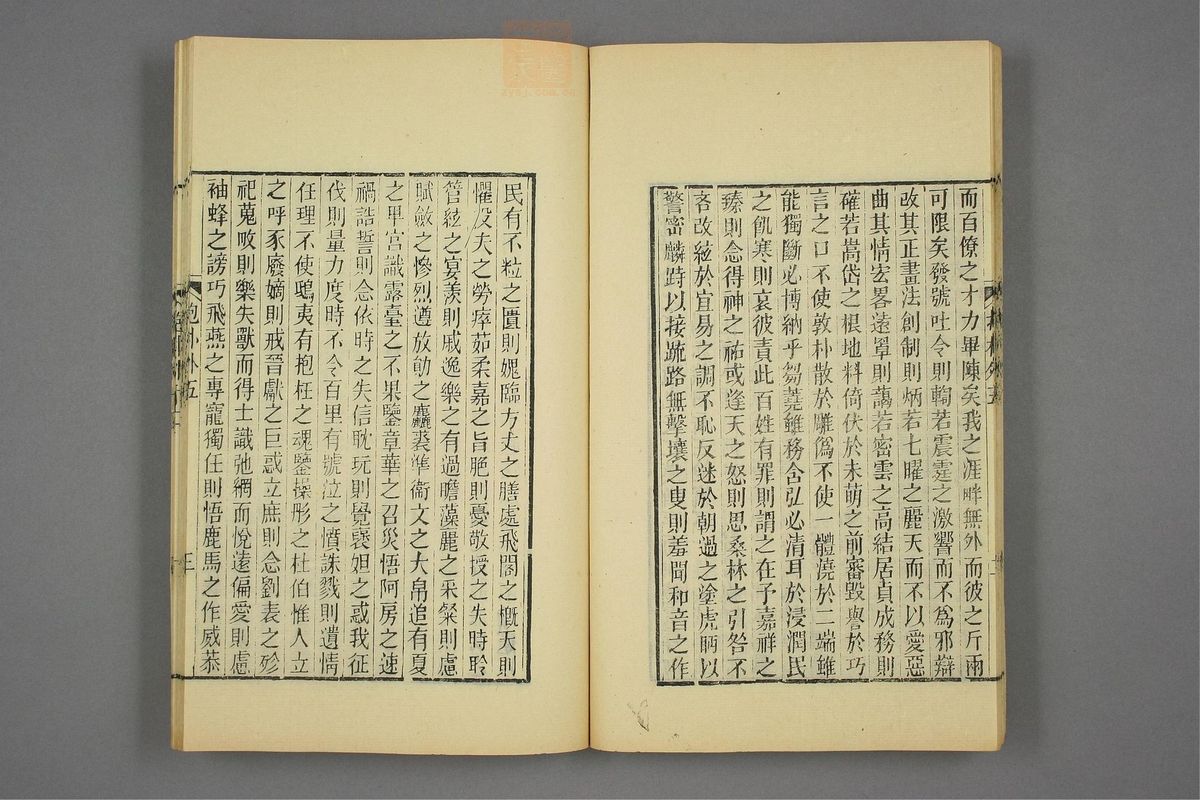 而百僚之才力畢陳矣我之涯畔無外而彼之斤兩
可限矣發號吐令則輷若震霆之激響而不爲邪辯
改其正畫法創制則炳若七曜之麗天而不以愛惡
曲其情宏畧遠罩則藹若密雲之高結居貞成務則
確若嵩岱之根地料倚伏於未萌之前審毀譽於巧
言之口不使敦朴散於雕僞不使一體澆於二端雖
能獨斷必博納乎芻蕘雖務含弘必清耳於浸潤民
之飢寒則哀彼責此百姓有罪則謂之在予嘉祥之
臻則念得神之祐或逢天之怒則思桑林之引咎不
吝改絃於宜易之調不恥反迷於朝過之塗虎眄以
警密麟跱以接疏路無擊壤之叟則羞聞和音之作
民有不粒之匱則媿臨方丈之膳處飛閣之槪天則
懼役夫之勞瘁茹柔嘉之旨脆則憂敬授之失時聆
管絃之宴羨則戚逸樂之有過瞻藻麗之采粲則慮
賦斂之慘烈遵放勛之麤裘準衞文之大帛追有夏
之卑宮識露臺之不果鑒章華之召災悟阿房之速
禍誥誓則念依時之失信耽玩則覺褒妲之惑我征
伐則量力度時不令百里有號泣之憤誅戮則遺情
任理不使鴟夷有抱枉之魂鑒操彤之杜伯惟人立
之呼豕廢嫡則戒晉獻之巨惑立庶則念劉表之殄
祀蒐畋則樂失獸而得士識弛網而悅遠偏愛則慮
袖蜂之謗巧飛燕之專寵獨任則悟鹿馬之作威恭
抱朴外五
三